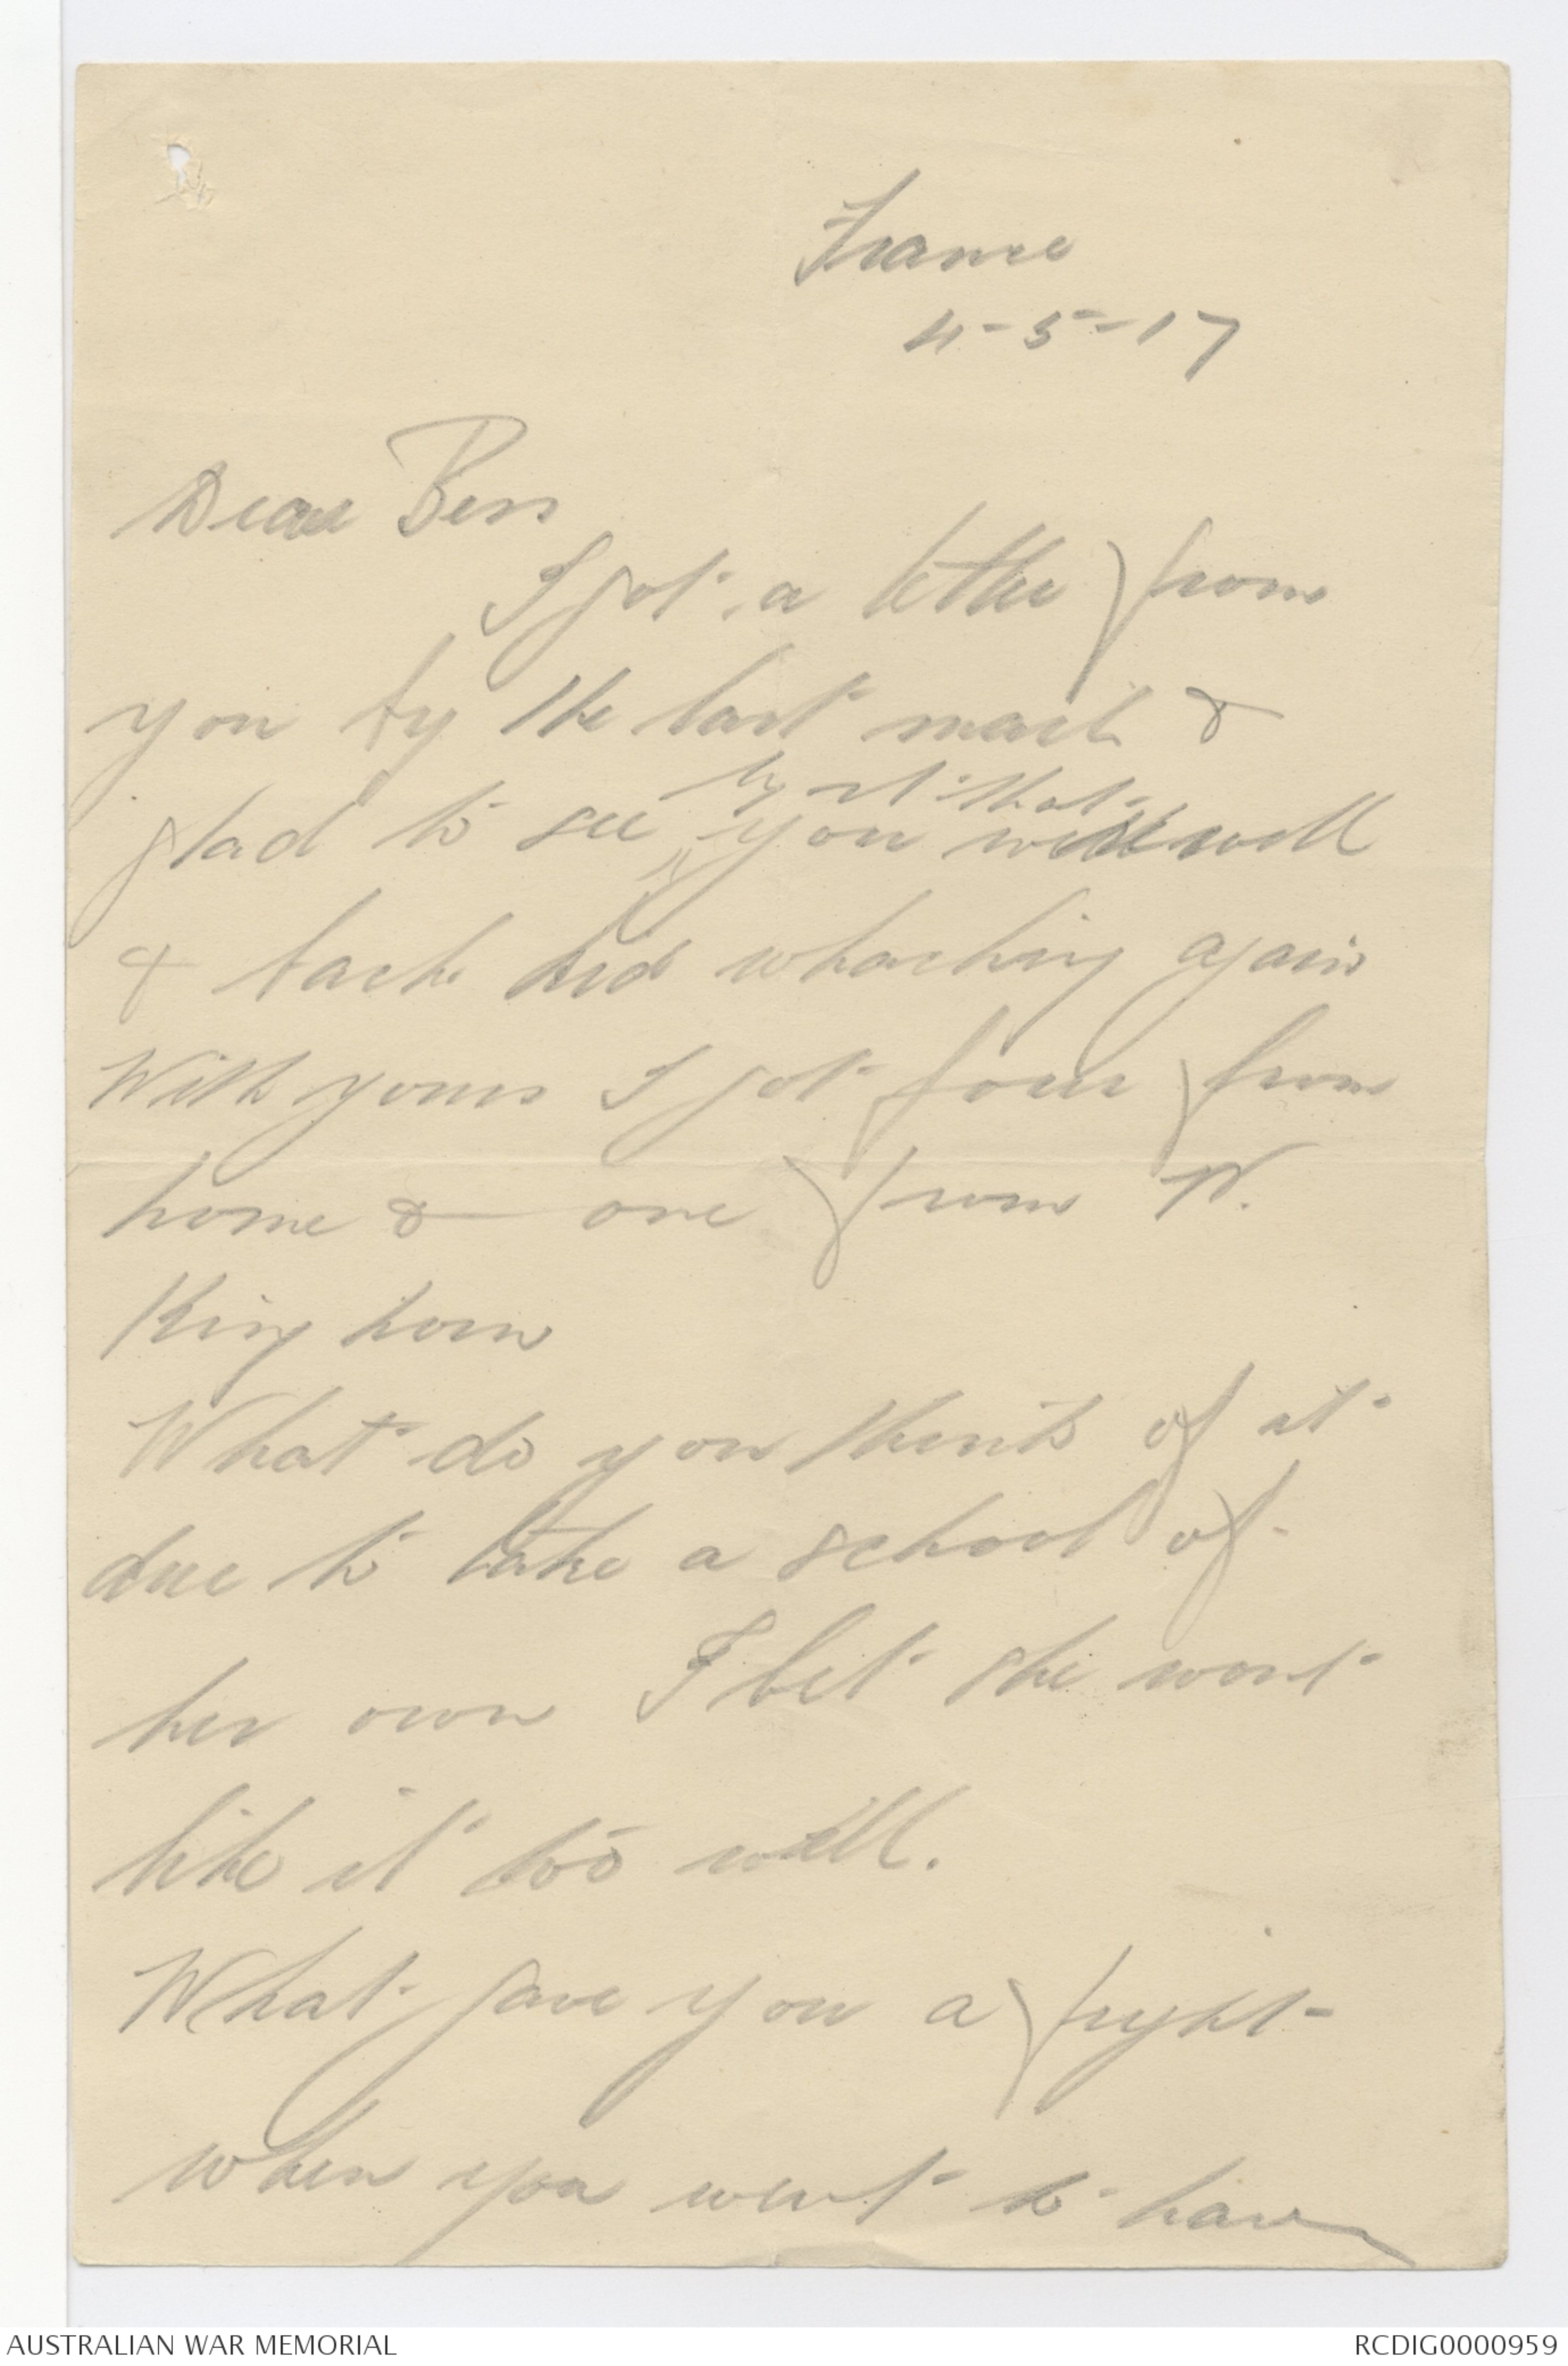 France
4-5-17
Dear Bess
I got a letter from
you by the last mail &
by it that
glad to see you were well
& back kid whacking again
With yours I got four from
home & one from W.
Kinghorn
What do you think of it
due to take a school of
her own I bet she wont
like it too well.
What gave you a fright
when you went to have
AUSTRALIAN WAR MEMORIAL
RCDIG0000959